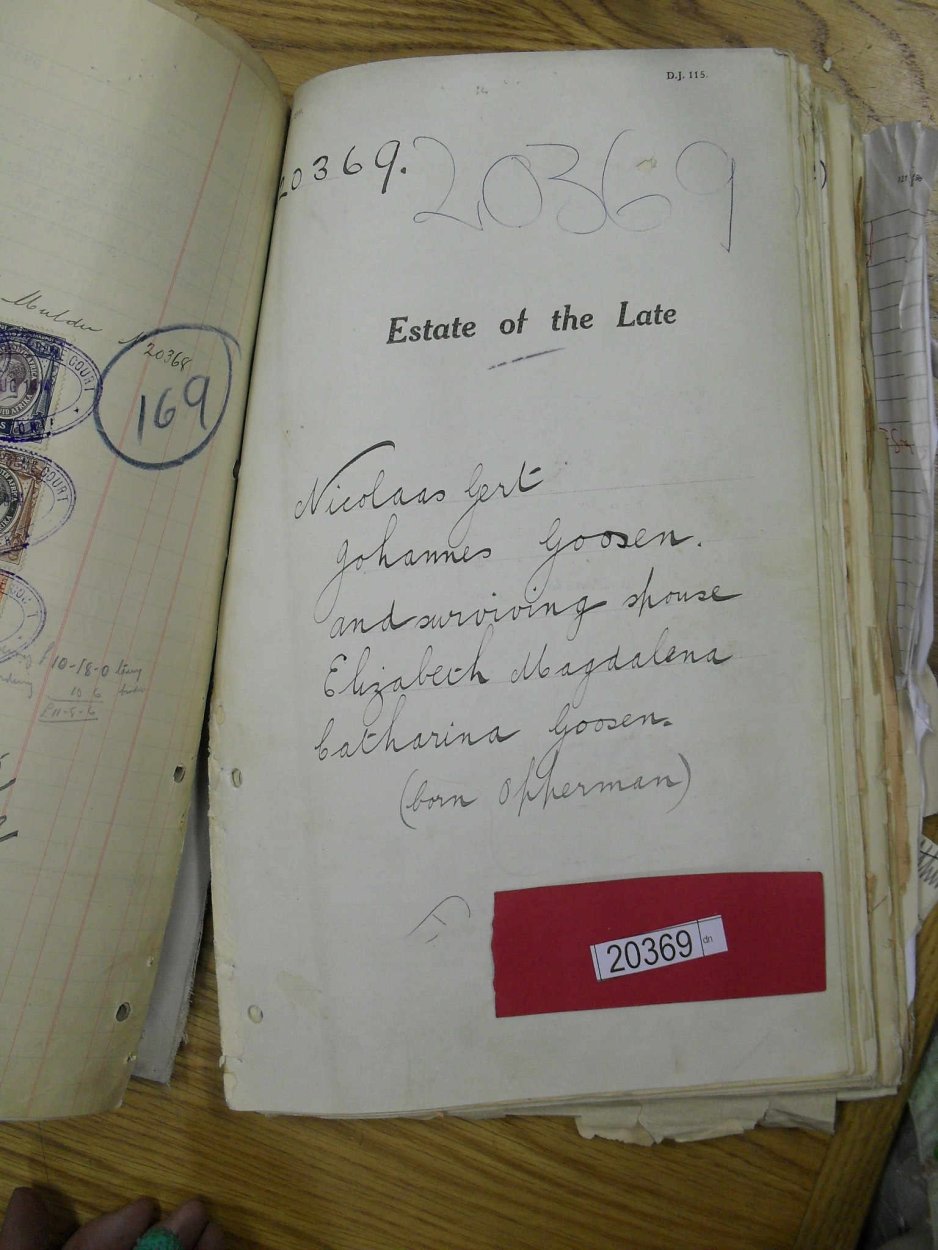 Mulder
20368
169
COURT
COURT
10-18-0
10 6
D.J. 115.
20369.
20369
Estate of the Late
Nicolaas Gert
Johannes Goosen.
and surviving spouse
Elizabeth Magdalena
Catharina Goosen.
(born Opperman)
20369 dn